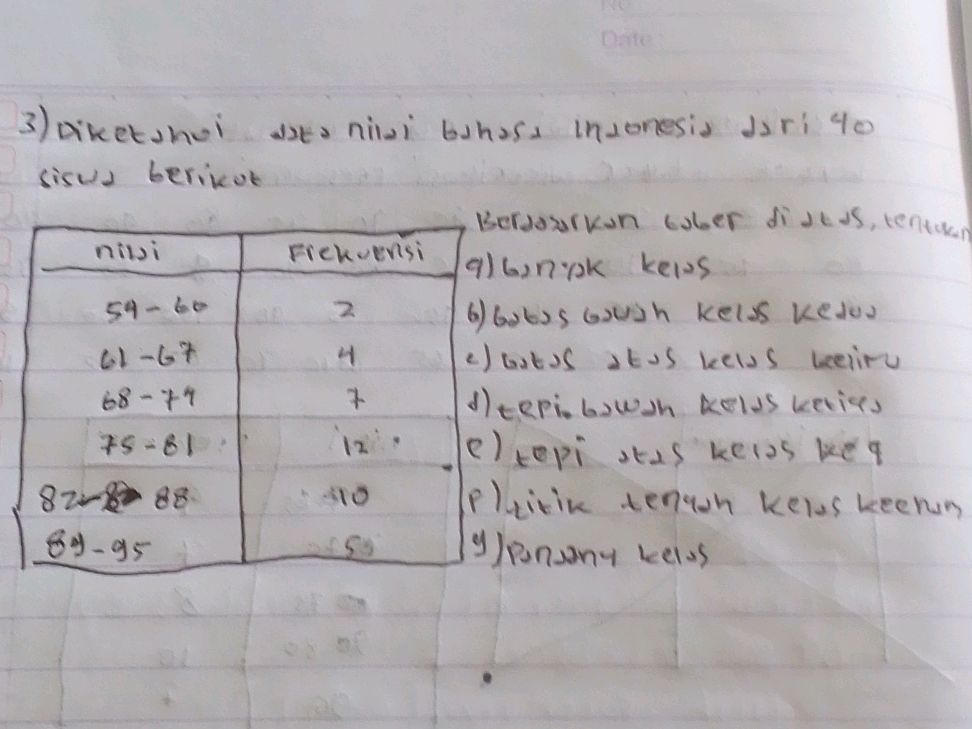 No
Date :
3) Diketahui data nilai bahasa indonesia dari 40
siswa berikut
Berdasarkan tabel di atas, tentukan
nilai Frekuensi
a) banyak kelas
54-60 2
b) batas bawah kelas kedua
61-67 4
c) batas atas kelas kelima
68-74 7
d) tepi bawah kelas ketiga
75-81 12
e) tepi atas kelas ke 4
82- 88 10
f) titik tengah kelas keenam
89-95 5
g) Panjang kelas